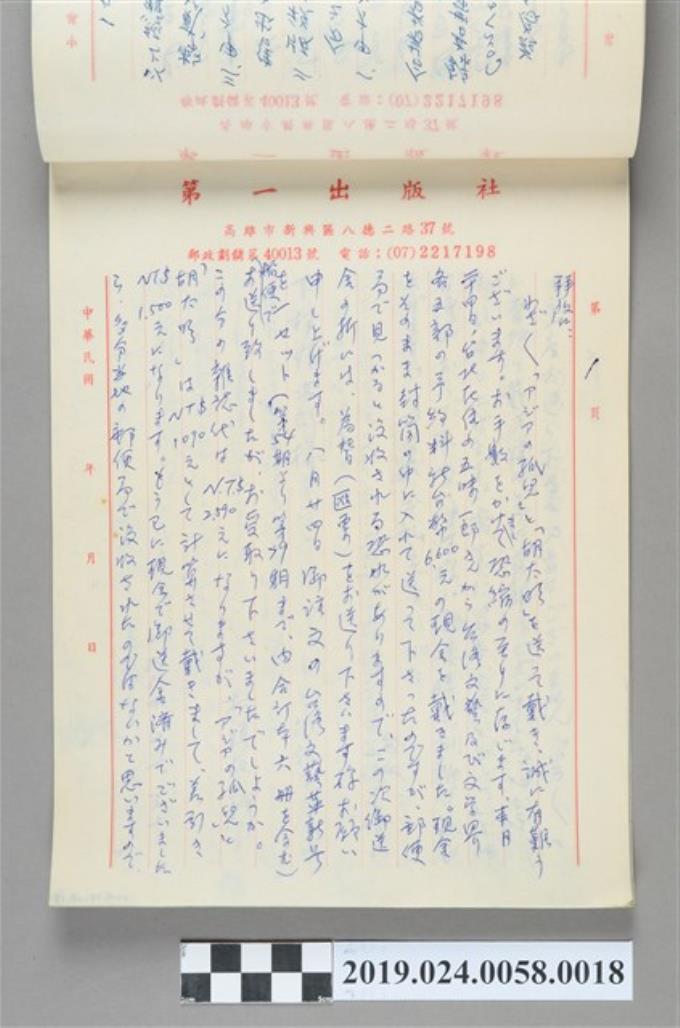 第一出版社
高雄市新興區八德二路37號
郵政劃儲第40013號 電話：(07)2217198
第 1 頁
拝啟に
わざ〱「アジアの孤児」と「胡太明」を送って戴き、誠に有難う
ございます。お手数をかけ恐縮の至りに存います。本月
廿四日、台北在住の五味一郎さんから台湾文藝及び文学界
各五部の予約料新台幣6,600元の現金を戴きました。現金
をそのまま封筒の中に入れて送って下さったのですが、郵便
局で見つかると没収される恐れがありますので、この次御送
金の折には、為替（匯票）をお送り下さいます様お願い
申し上げます。八月廿四日御注文の台湾文藝革新号
を一セット（第54期より第79期まで、内合訂本六冊を含む）
船便で
お送り致しましたが、お受取り下さいましたでしょうか。
この分の雑誌代はNT$2,590元になりますが、「アジアの孤児」と
「胡太明」はNT$1,090元として計算させて戴きまして、差引き
NT$1,500元になります。もう已に現金で御送金済みでございました
ら、多分当地の郵便局で没収されたのではないかと思いますので
中華民國 年 月 日
2019.024.0058.0018